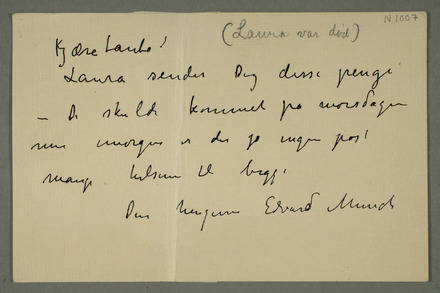 N 1007
(Laura var død)
Kjære tante!
Laura sender Dig disse penge
– De skulde kommet på morsdagen
men imorgen er der jo ingen post
mange hilsener til begge
Din hengivne Edvard Munch